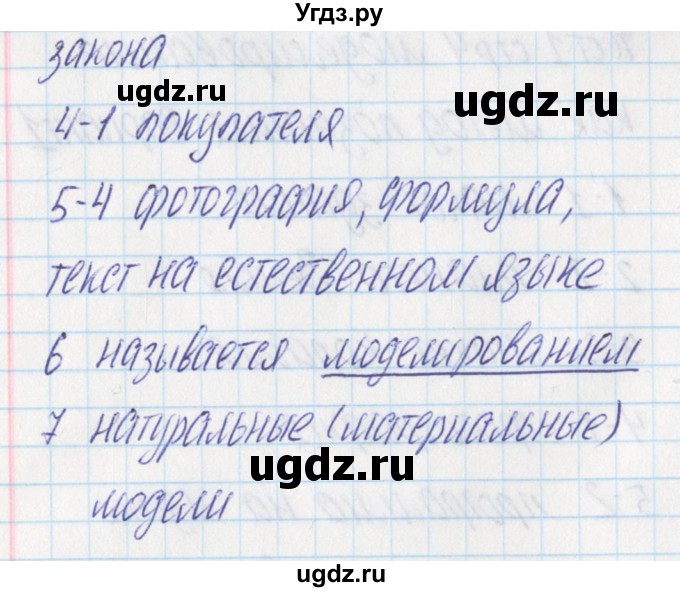 Угдз.ру
закона
ugdz.ru
4-1 покупателя
ugdz.ru
5-4 фотография, формула,
текст на естественном языке
ugdz.ru
6 называется моделированием
7 натуральные (материальные)
ugdz.ru
модели
ugdz.ru